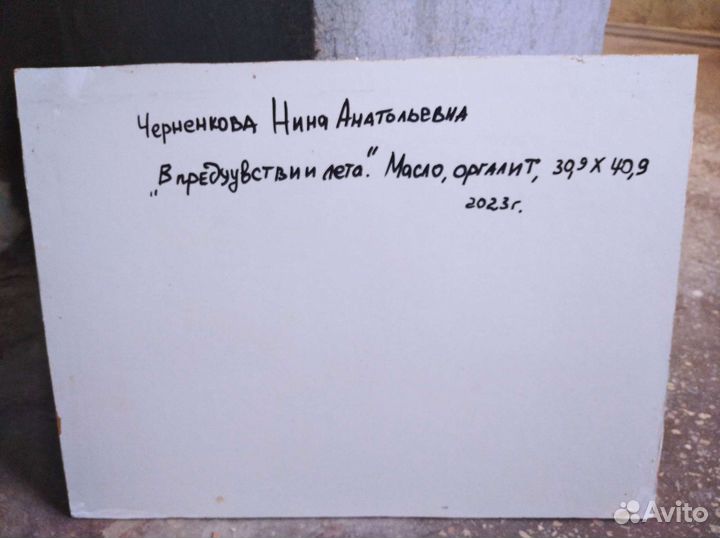 Черненкова Нина Анатольевна
"В предчувствии лета." Масло, оргалит, 30,9 х 40,9
2023г.
Avito